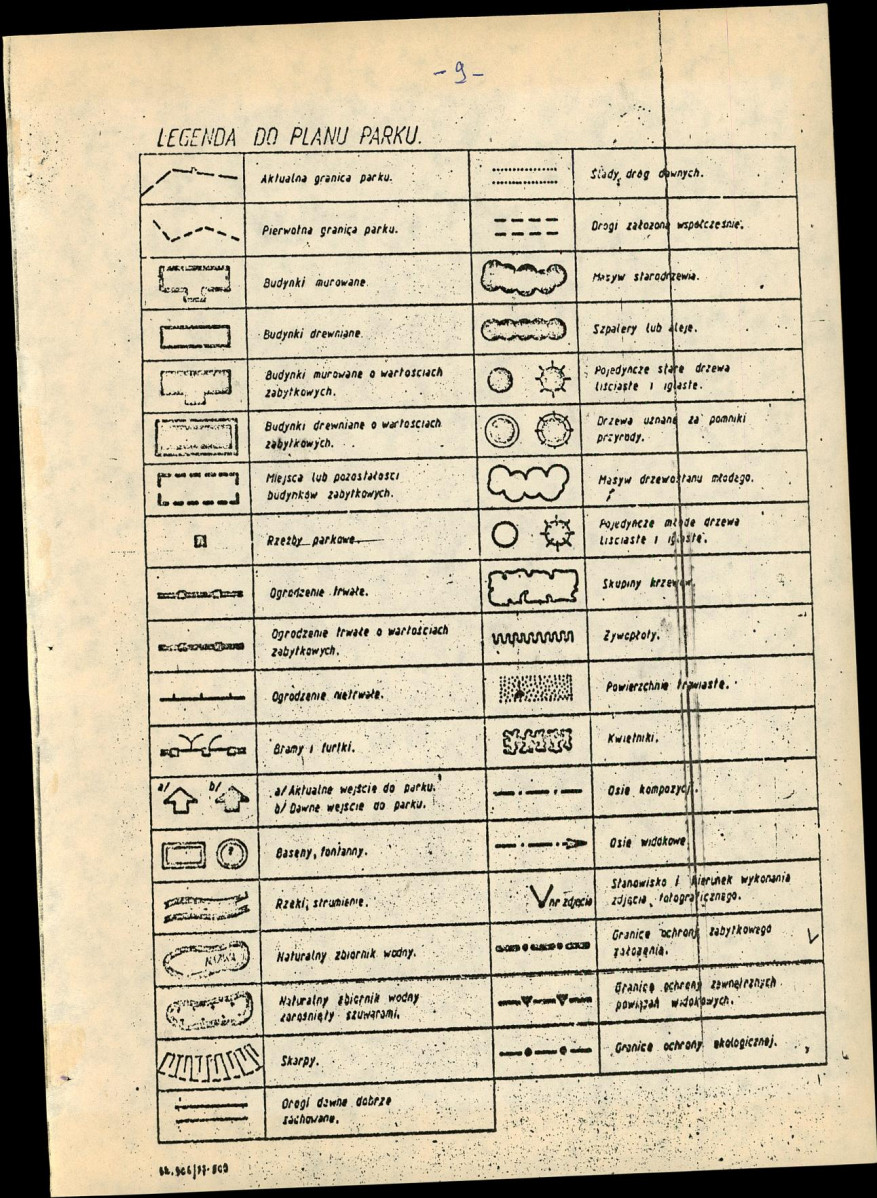 - 9 -
LEGENDA DO PLANU PARKU.
Aktualna granica parku.
Pierwotna granica parku.
Budynki murowane.
Budynki drewniane.
Budynki murowane o wartościach
zabytkowych.
Budynki drewniane o wartościach
zabytkowych.
Miejsca lub pozostałości
budynków zabytkowych.
Rzeźby parkowe.
Ogrodzenie trwałe.
Ogrodzenie trwałe o wartościach
zabytkowych.
Ogrodzenie nietrwałe.
Bramy i furtki.
a/ b/
a/Aktualne wejście do parku.
b/Dawne wejście do parku.
Baseny, fontanny.
Rzeki, strumienie.
Naturalny zbiornik wodny.
Naturalny zbiornik wodny
zarośnięty szuwarami.
Skarpy.
Drogi dawne dobrze
zachowane.
Ślady dróg dawnych.
Drogi założone współcześnie.
Masyw starodrzewia.
Szpalery lub aleje.
Pojedyńcze stare drzewa
liściaste i iglaste.
Drzewa uznane za pomniki
przyrody.
Masyw drzewostanu młodego.
Pojedyńcze młode drzewa
liściaste i iglaste.
Skupiny krzewów.
Żywopłoty.
Powierzchnie trawiaste.
Kwietniki.
Osie kompozycji.
Osie widokowe.
V nr zdjęcia
Stanowisko i kierunek wykonania
zdjęcia fotograficznego.
Granice ochrony zabytkowego
założenia.
Granice ochrony zewnętrznych
powiązań widokowych.
Granice ochrony ekologicznej.